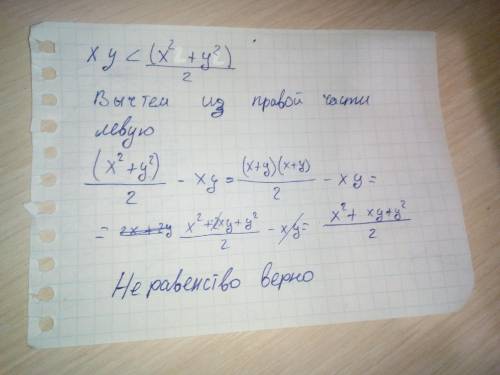 xy < (x² + y²)/2
Вычтем из правой части
левую
(x² + y²)/2 - xy = (x+y)(x+y)/2 - xy =
= x² + 2xy + y²/2 - xy = x² + xy + y²/2
Неравенство верно